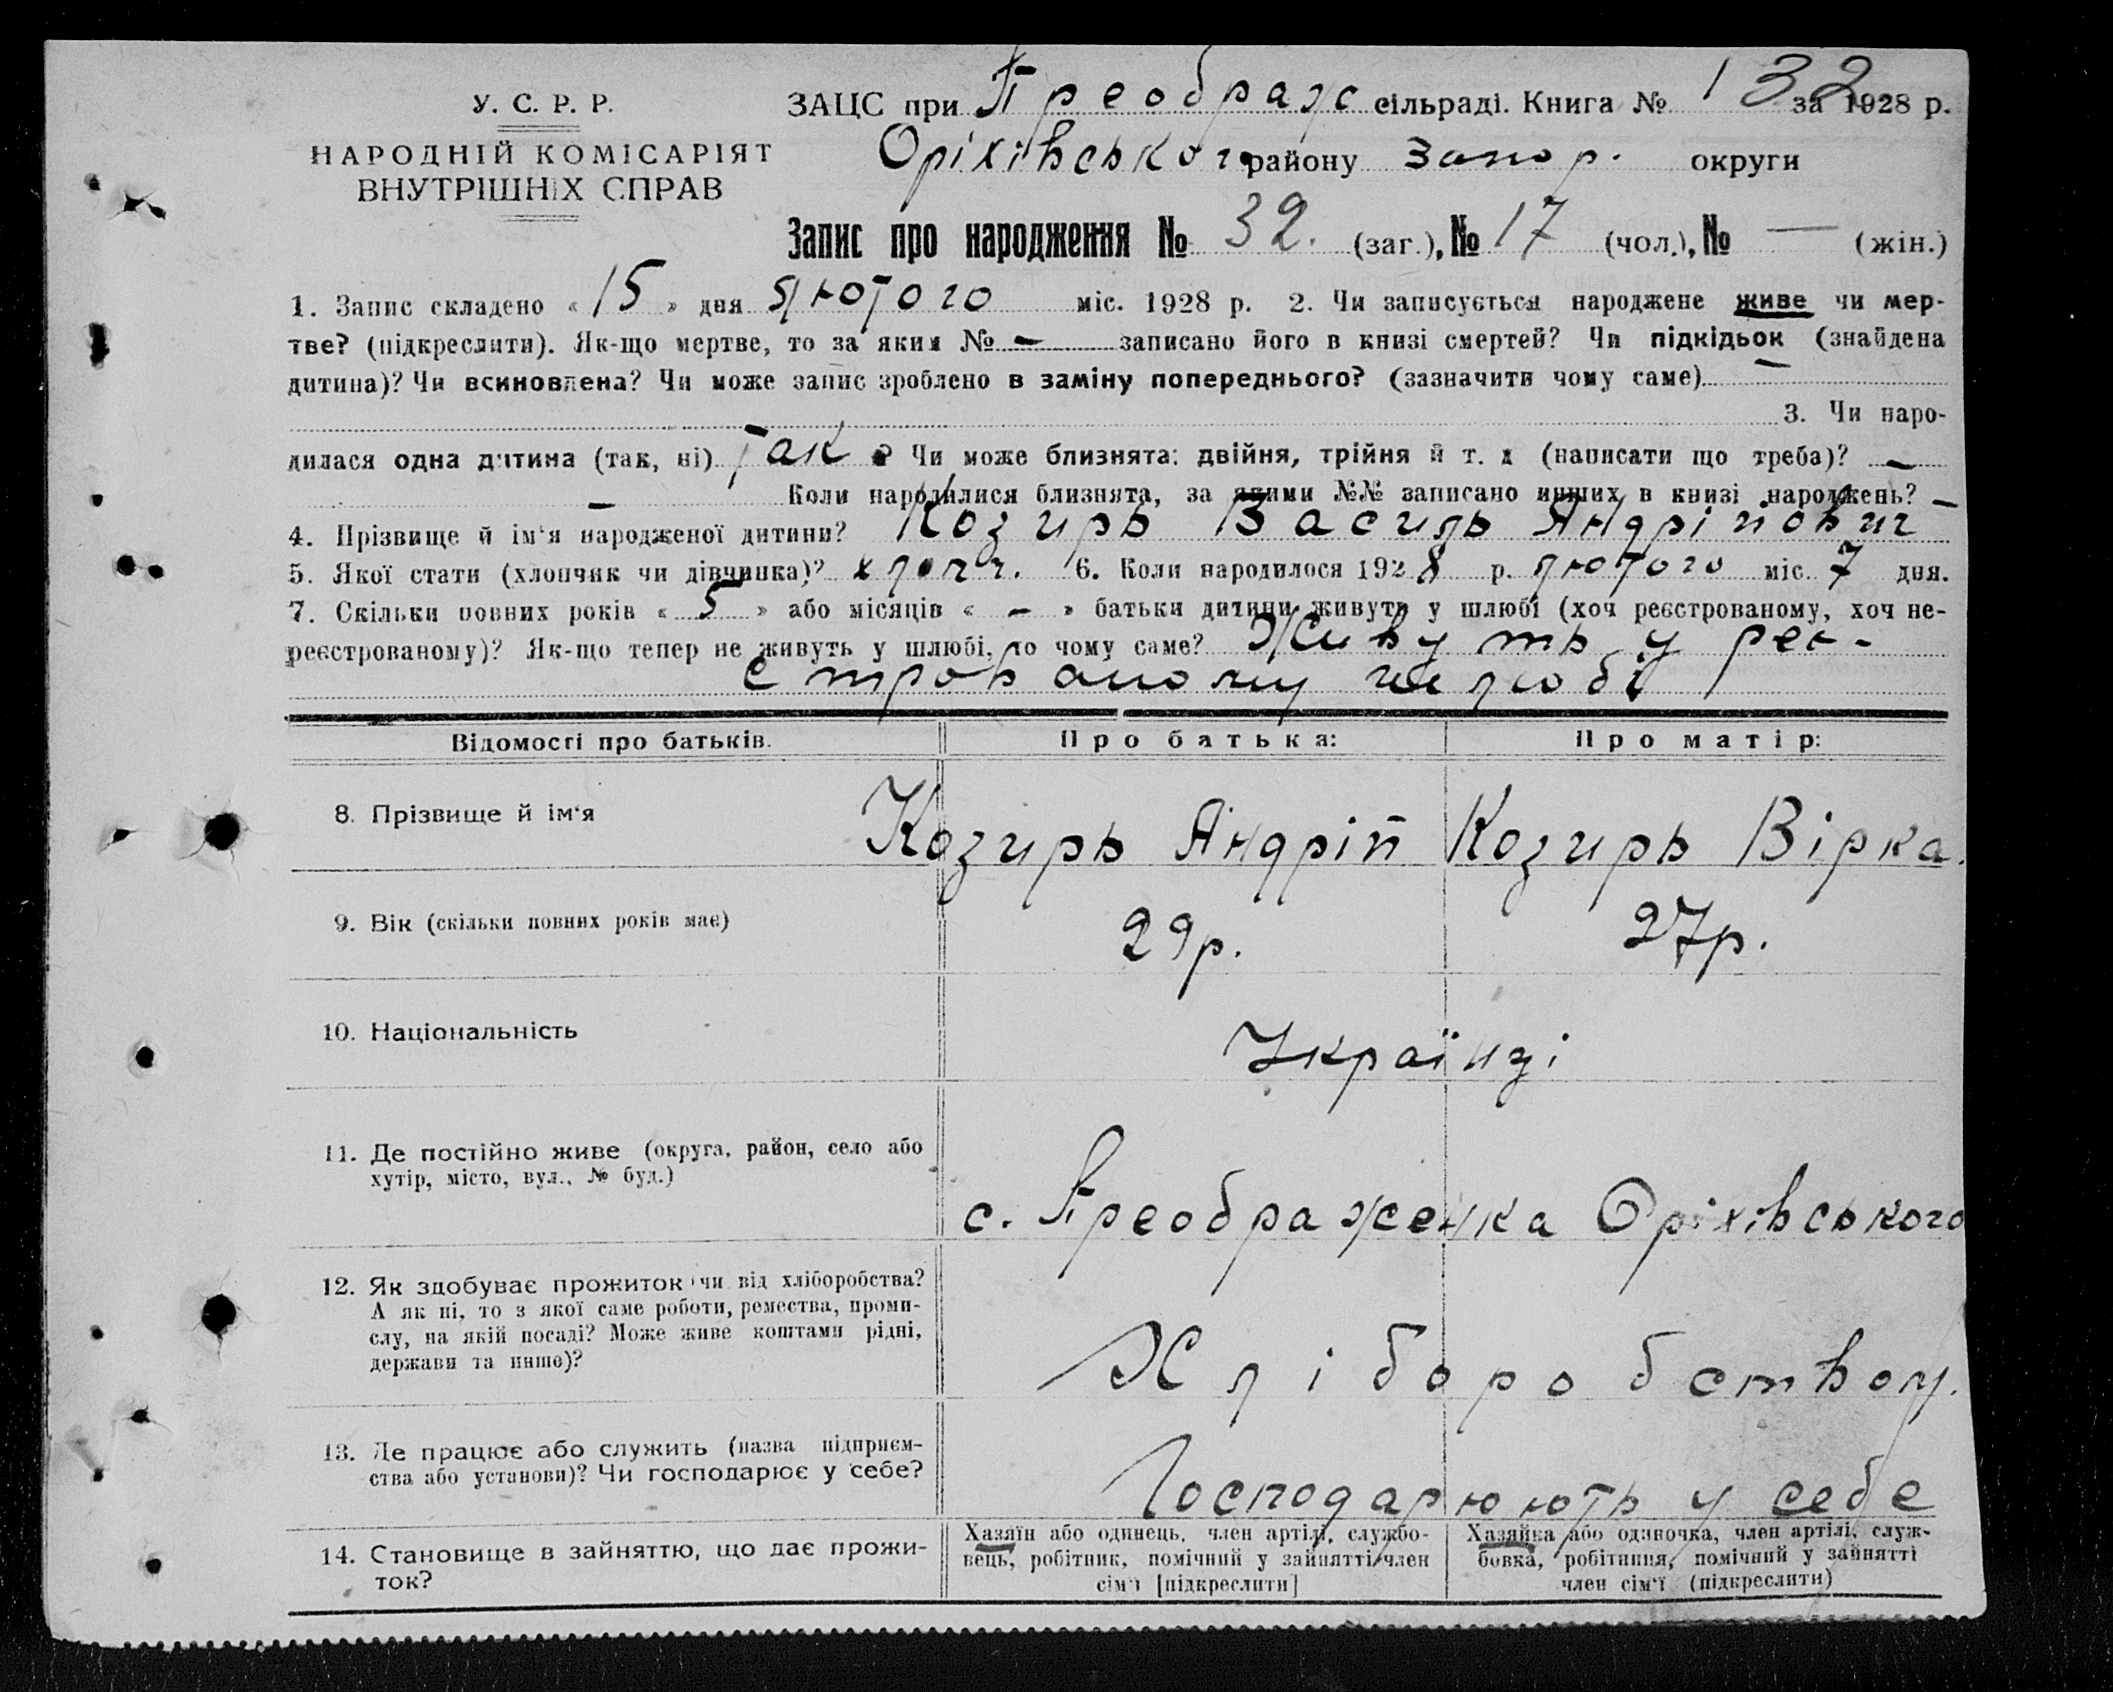 У. С. Р. Р.
НАРОДНІЙ КОМІСАРІЯТ
ВНУТРІШНІХ СПРАВ
ЗАЦС при Преображ сільраді. Книга № 132 за 1928 р.
Оріхівського району Запор. округи
Запис про народження № 32. (заг.), № 17 (чол.), № — (жін.)
1. Запис складено « 15 » дня лютого міс. 1928 р. 2. Чи записується народжене живе чи мер-
тве? (підкреслити). Як-що мертве, то за яким № — записано його в книзі смертей? Чи підкідьок (знайдена
дитина)? Чи всиновлена? Чи може запис зроблено в заміну попереднього? (зазначити чому саме) —
3. Чи наро-
дилася одна дитина (так, ні) так ? Чи може близнята: двійня, трійня й т. д (написати що треба)? —
— Коли народилися близнята, за якими №№ записано инших в книзі народжень? —
4. Прізвище й ім'я народженої дитини? Козирь Василь Андрійович
5. Якої стати (хлопчик чи дівчинка)? хлопч. 6. Коли народилося 1928 р. лютого міс. 7 дня.
7. Скільки повних років « 5 » або місяців « – » батьки дитини живуть у шлюбі (хоч реєстрованому, хоч не-
реєстрованому)? Як-що тепер не живуть у шлюбі, то чому саме? Живуть у реє-
строваному шлюбі
Відомості про батьків. Про батька: Про матір:
8. Прізвище й ім'я Козирь Андрій Козирь Вірка.
9. Вік (скільки повних років має) 29р. 27р.
10. Національність Українці
11. Де постійно живе (округа, район, село або
хутір, місто, вул., № буд.)
с. Преображенка Оріхівського
12. Як здобуває прожиток чи від хліборобства?
А як ні, то з якої саме роботи, ремества, проми-
слу, на якій посаді? Може живе коштами рідні,
держави та инше)?
Хліборобством.
13. Де працює або служить (назва підприєм-
ства або установи)? Чи господарює у себе?
Господарюють у себе
14. Становище в зайняттю, що дає прожи-
ток?
Хазяїн або одинець, член артілі, службо-
вець, робітник, помічний у зайнятті член
сім'ї [підкреслити]
Хазяйка або одиночка, член артілі, служ-
бовка, робітниця, помічний у зайнятті
член сім'ї (підкреслити)